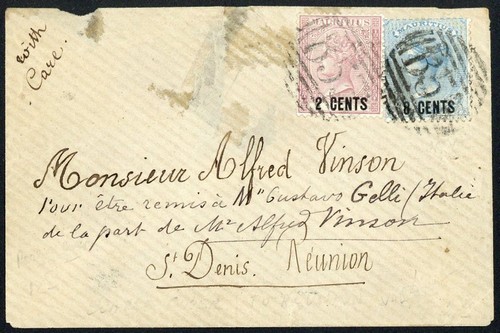 with
Care.
MAURITIUS
2 CENTS
MAURITIUS
8 CENTS
Monsieur Alfred Vinson
Pour être remis à Mr Gustavo Gelli / Italie
de la part de Mr Alfred Vinson
St Denis. Réunion